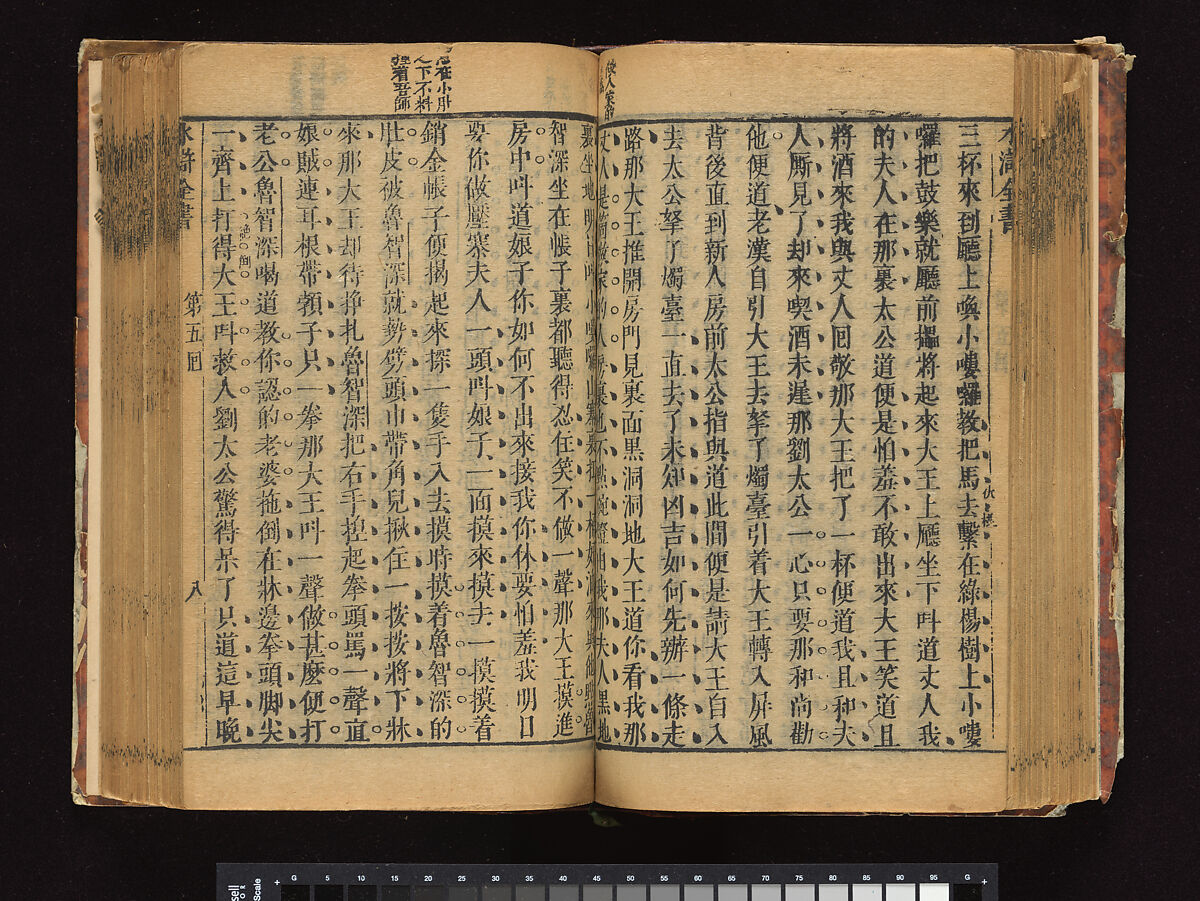 水滸全書
三杯來到廳上喚小嘍囉教把馬去繫在綠楊樹上小嘍
囉把鼓樂就廳前擂將起來大王上廳坐下叫道丈人我
的夫人在那裏太公道便是怕羞不敢出來大王笑道且
將酒來我與丈人回敬那大王把了一杯便道我且和夫
人廝見了却來喫酒未遲那劉太公一心只要那和尚勸
他便道老漢自引大王去拏了燭臺引着大王轉入屏風
背後直到新人房前太公指與道此間便是請大王自入
去太公拏了燭臺一直去了未知凶吉如何先辦一條走
路那大王推開房門見裏面黑洞洞地大王道你看我那
丈人是
裏坐地明日
智深坐在帳子裏都聽得忍住笑不做一聲那大王摸進
房中叫道娘子你如何不出來接我你休要怕羞我明日
要你做壓寨夫人一頭叫娘子一面摸來摸去一摸摸着
銷金帳子便揭起來探一隻手入去摸時摸着魯智深的
肚皮被魯智深就勢劈頭巾帶角兒揪住一按按將下牀
來那大王却待掙扎魯智深把右手捏起拳頭罵一聲直
娘賊連耳根帶頸子只一拳那大王叫一聲做甚麼便打
老公魯智深喝道教你認的老婆拖倒在牀邊拳頭脚尖
一齊上打得大王叫救人劉太公驚得呆了只道這早晚
絕倒
在小肚
之下不料
着吾師
水滸全書
第五回
八